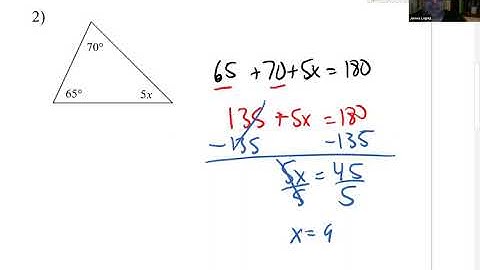 2)
70°
65° 5x
65 + 70 + 5x = 180
135 + 5x = 180
-135 -135
5x/5 = 45/5
x = 9